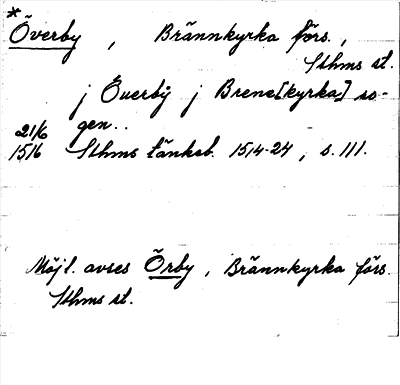 *
Överby, Brännkyrka förs.,
Sthms st.
j Öuerbÿ j Brene[kyrka] so-
gen..
21/6
1516 Sthms tänkeb. 1514-24, s. 111.
Möjl. avses Örby, Brännkyrka förs.
Sthms st.